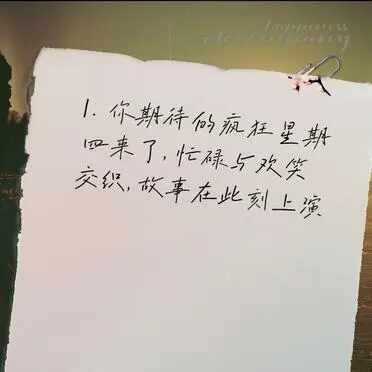 1. 你期待的疯狂星期
四来了,忙碌与欢笑
交织,故事在此刻上演